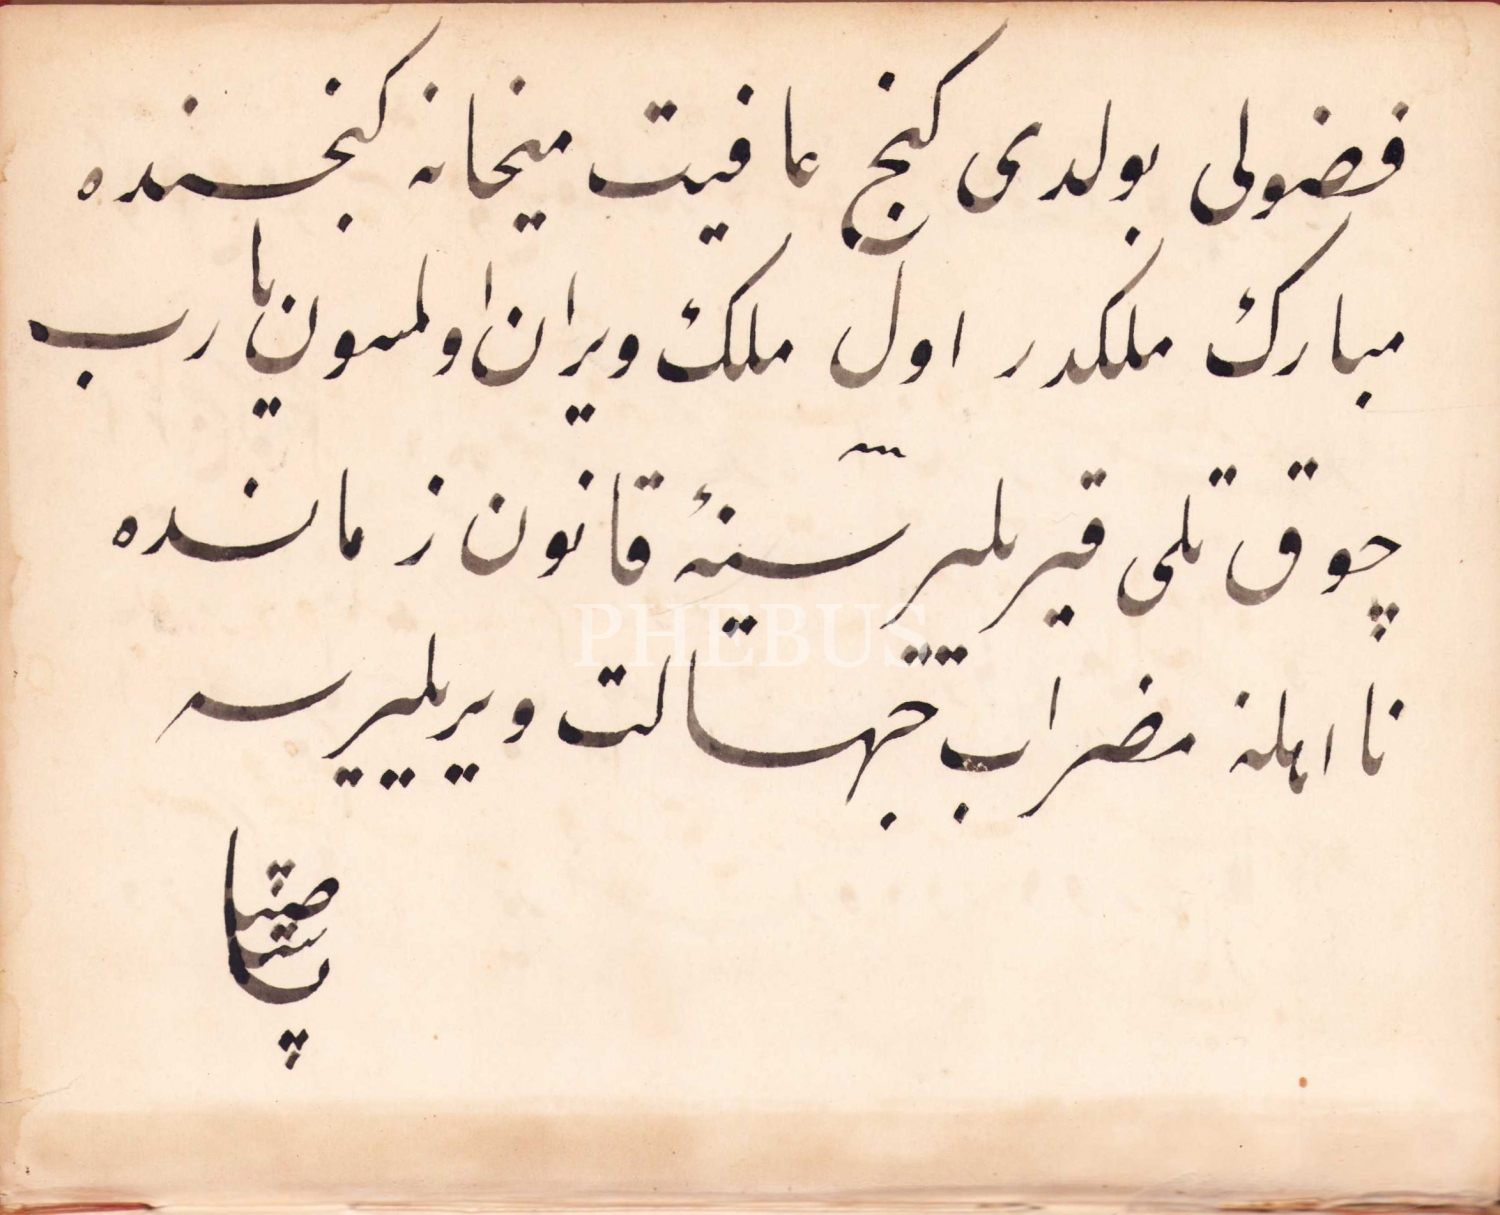 فضولی بولدی كنج عافیت میخانه كنجنده
مبارك ملكدر اول ملك ویران اولمسون یا رب
چوق تلی قیریلیر سینهٔ قانون زمانده
نا اهلنه مضراب جهالت ویریلیرسه
PHEBUS